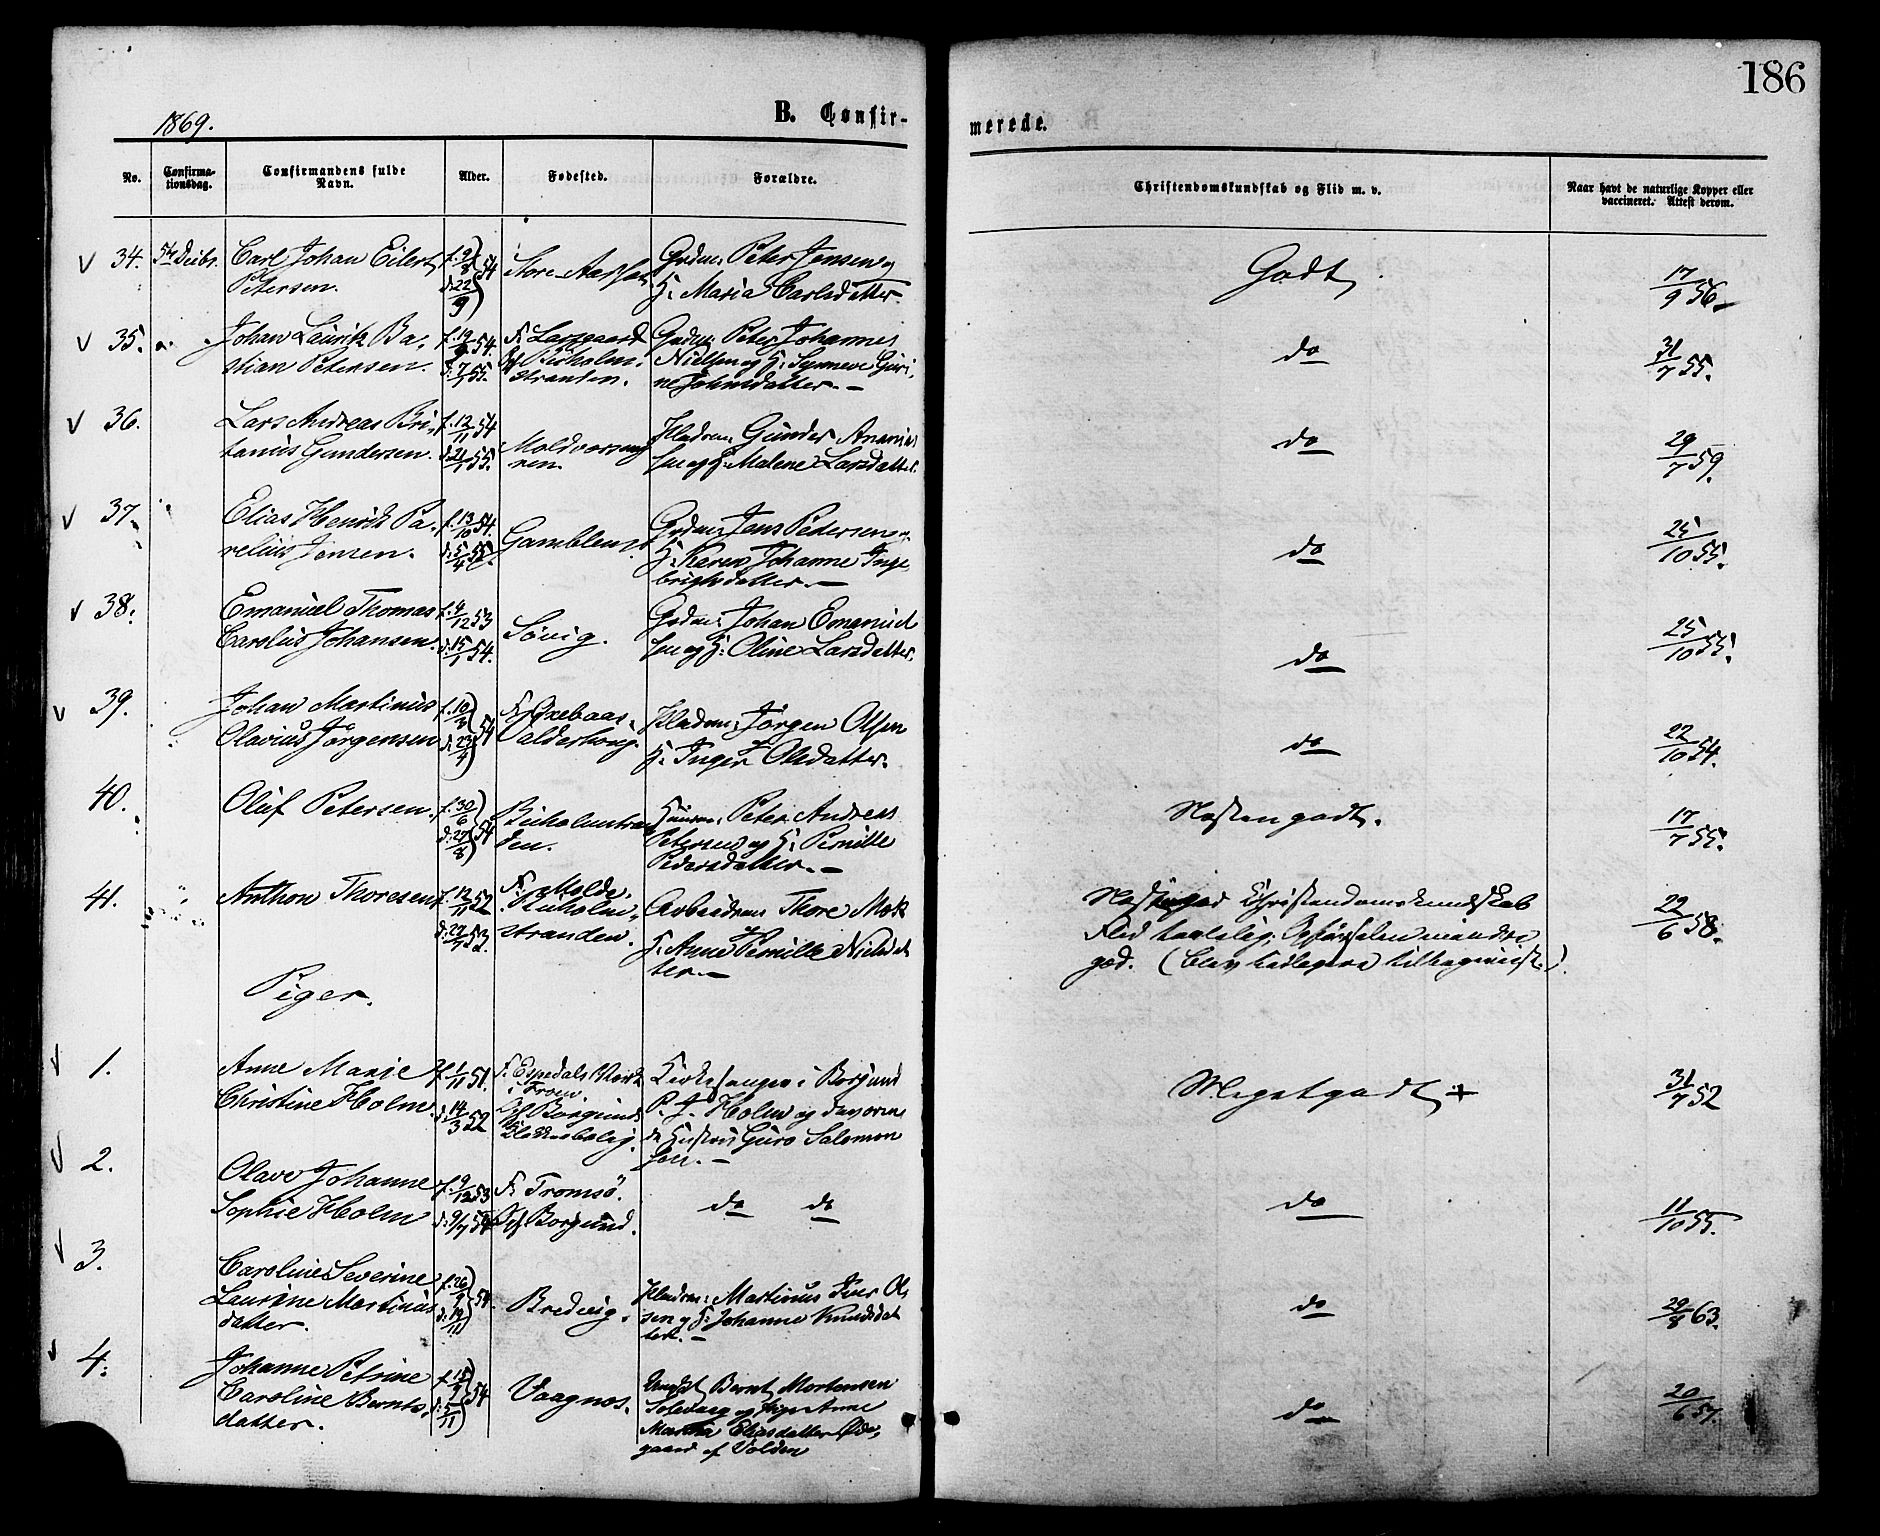 186
1869.
B. Confir-
merede.
No.
Confirma-
tionsdag.
Confirmandens fulde
Navn.
Alder.
Fødested.
Forældre.
Christendomskundskab og Flid m. v.
Naar havt de naturlige Kopper eller
vaccineret. Attest derom.
34.
Carl Johan Eilert
Petersen.
f. 9/8 54
d. 22/9
Store
Peter Jensen og
H. Maria Carlsdatter.
Godt
17/9 56
35.
Johan Lauritz Ba-
stian Petersen.
d. 7/1 55.
stranden.
Grdm. Peter Johannes
Nielsen og H. Synneve Guri-
ne Johnsdatter.
do
31/7 55.
36.
Lars Andreas Bri-
tanius Gundersen.
f. 12/11 54
d. 21/1 55.
Gunder Ananias
sen og H. Malene Larsdatter.
do
29/7 59.
37.
Elias Henrik Pa-
relius Jensen.
f. 13/10 54.
d. 5/4 55.
Gamblem
Grdm. Jens Pedersen og
H. Karen Johanne Inge-
brigtsdatter.
do
25/10 55.
38.
Emanuel Thomas
Carolus Johansen.
f. 4/12 53
d. 15/1 54.
Søvig.
Grdm. Johan Emanuel
sen og H. Oline Larsdatter.
do
25/10 55.
39.
Johan Martinus
Olavius Jørgensen
f. 10/3
d. 23/4 54
Valderhoug.
Jørgen Olsen
og
H. Inger Olsdatter.
do
22/10 54.
40.
Oluf Petersen.
f. 30/6
d. 27/8 54
den.
Peter Andreas
Petersen og H. Pernille
Pedersdatter.
Næsten godt.
17/7 55.
41.
Anthon Thoresen
f. 12/11 52
53.
F. Molde.
stranden.
Arbeidsm. Thore Mok
og
H. Anne Pernille Nielsdat
ter.
Næsten god Christendomskundskab
Flid taalelig, Opførselen mindre
god. (blev tidligere tilbageviist.)
22/6 58.
Piger.
1.
Anne Marie
Christine Holm.
f. 1/11 51.
d. 14/3 52
F. Espedals Værk
i Fron.
Borgund
Klokkerbolig.
Kirkesanger i Borgund
P. J. Holm og daværen
de Hustru Guro Salomon
sen.
Meget godt
31/7 52
2.
Olave Johanne
Sophie Holm
f. 9/12 53
F. Tromsø.
Borgund.
do do
do
11/10 55.
3.
Caroline Severine
Laurine Martinus
datter.
f. 26/9
d. 19/11 54
Bredvig.
Martinus Iver Ol-
sen og H. Johanne Knudsdat
ter.
do
29/8 63.
4.
Johanne Petrine
Caroline Bernts-
datter.
f. 15/9
d. 5/11 54
Vaagnæs.
Bernt Mortensen
og Pige Anne
Martha Eliasdatter Øde-
gaard af Volden
do
20/6 57.